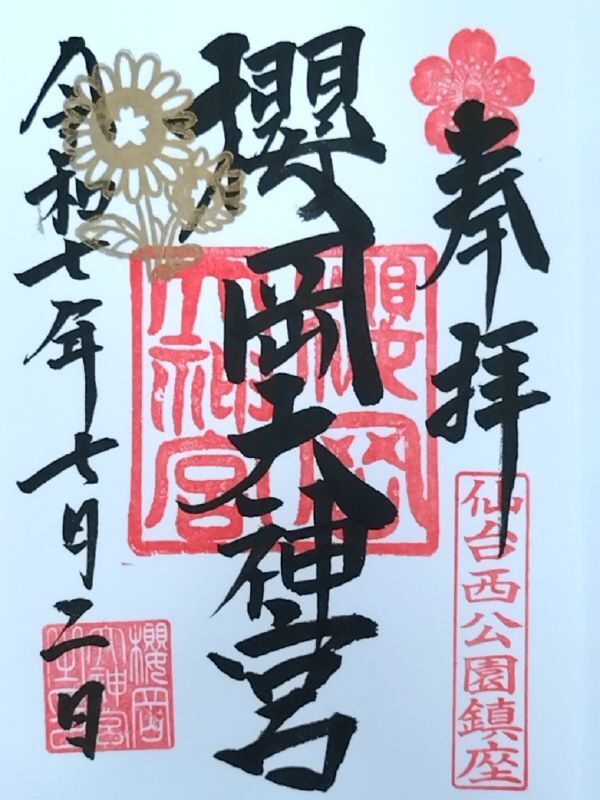 奉拝
仙台西公園鎮座
櫻岡大神宮
櫻岡大神宮
令和七年七月二日